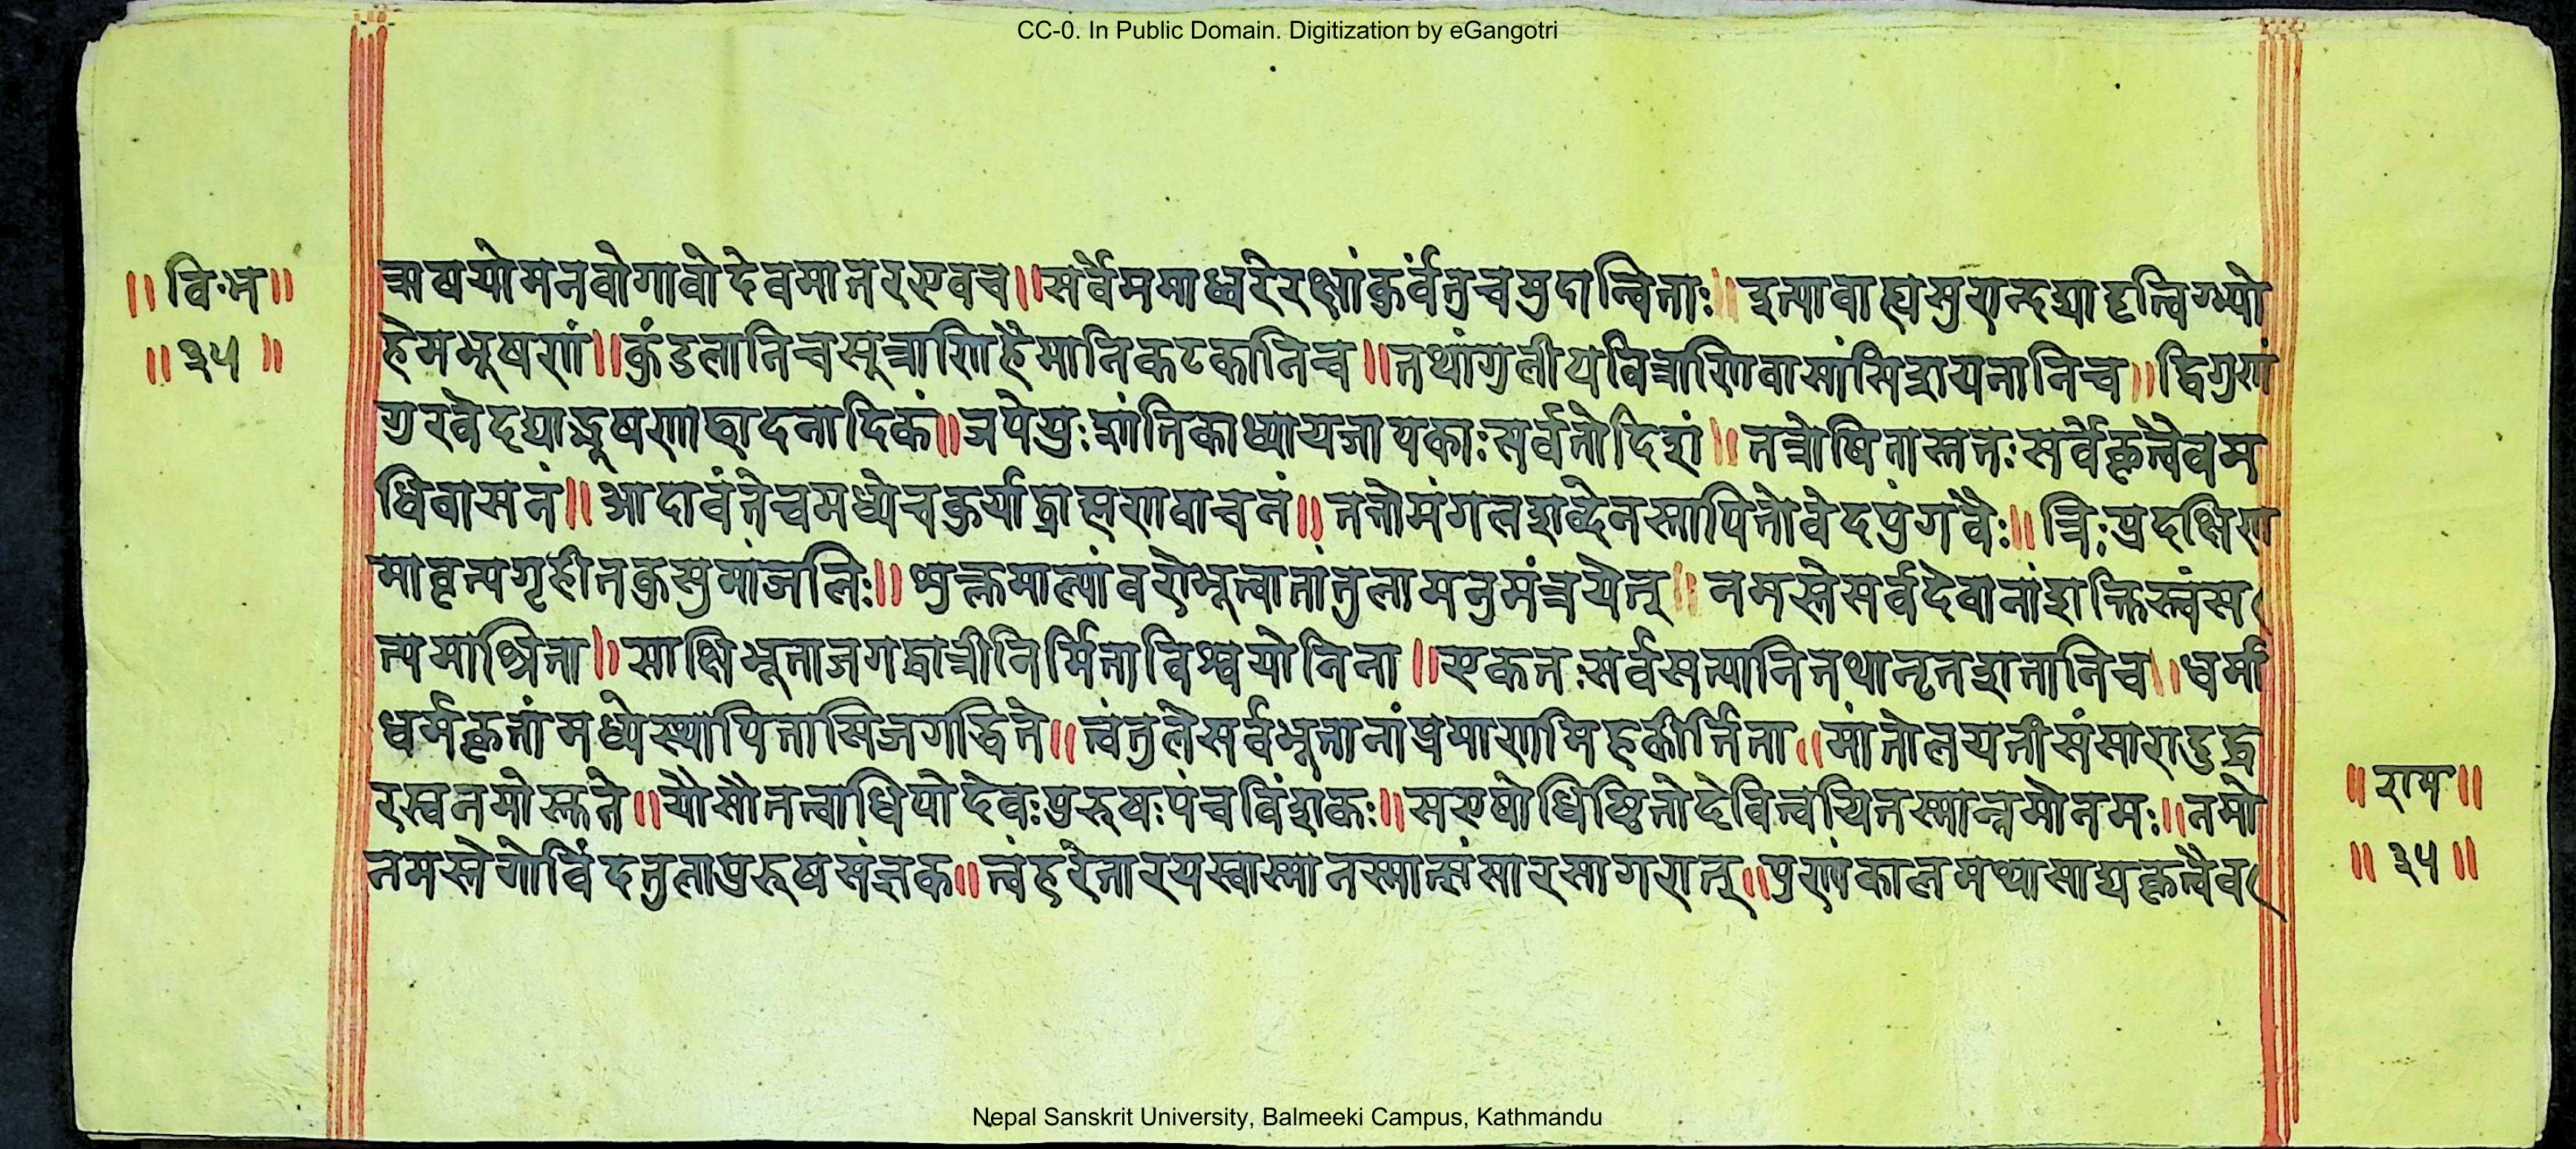 CC-0. In Public Domain. Digitization by eGangotri
॥वि॰भ॰॥
॥३५॥
ऋषयोमनवोगावोदेवमातरएवच॥सर्वेममाध्वरेरक्षांकुर्वंतुचमुदान्विताः॥इत्यावाह्यसुरान्दद्यादृत्विग्भ्यो
हेमभूषणं॥कुंडलानिचसूत्राणिहैमानिकटकानिच॥तथांगुलीयविचाणिवासांसिशयनानिच॥द्विगुणं
गुरवेदद्याद्भूषणाछादनादिकं॥जपेयुःशांतिकाध्यायजापकाःसर्वतोदिशं॥तत्रोषितास्ततःसर्वेकृत्वैवम
धिवासनं॥आदावंतेचमध्येचकुर्याद्ब्राह्मणवाचनं॥ततोमंगलशब्देनस्नापितोवेदपुंगवैः॥त्रिःप्रदक्षिण
मावृत्यगृहीतकुसुमांजलिः॥शुक्लमाल्यांवरोभूत्वातांतुलामनुमंत्रयेत्॥नमस्तेसर्वदेवानांशक्तिस्त्वंस
त्यमाश्रिता॥साक्षिभूताजगद्धात्रीनिर्मिताविश्वयोनिना॥एकतःसर्वसत्यानितथानृतशतानिच॥धर्मा
धर्मकृतांमध्येस्थापितासिजगद्धिते॥त्वंतुलेसर्वभूतानांप्रमाणमिहकीर्तिता॥मांतोलयतीसंसारादुद्ध
रस्वनमोस्तते॥योसौतत्वाधिपोदेवःपुरुषःपंचविंशकः॥सएषोधिष्ठितोदेवित्वयितस्मान्नमोनमः॥नमो
नमस्तेगोविंदतुलापुरूषसंज्ञक॥त्वंहरेतारयस्वास्मानस्मात्संसारसागरात्॥पुण्यंकालमथासाद्यकृत्वैव
॥राम॥
॥३५॥
Nepal Sanskrit University, Balmeeki Campus, Kathmandu